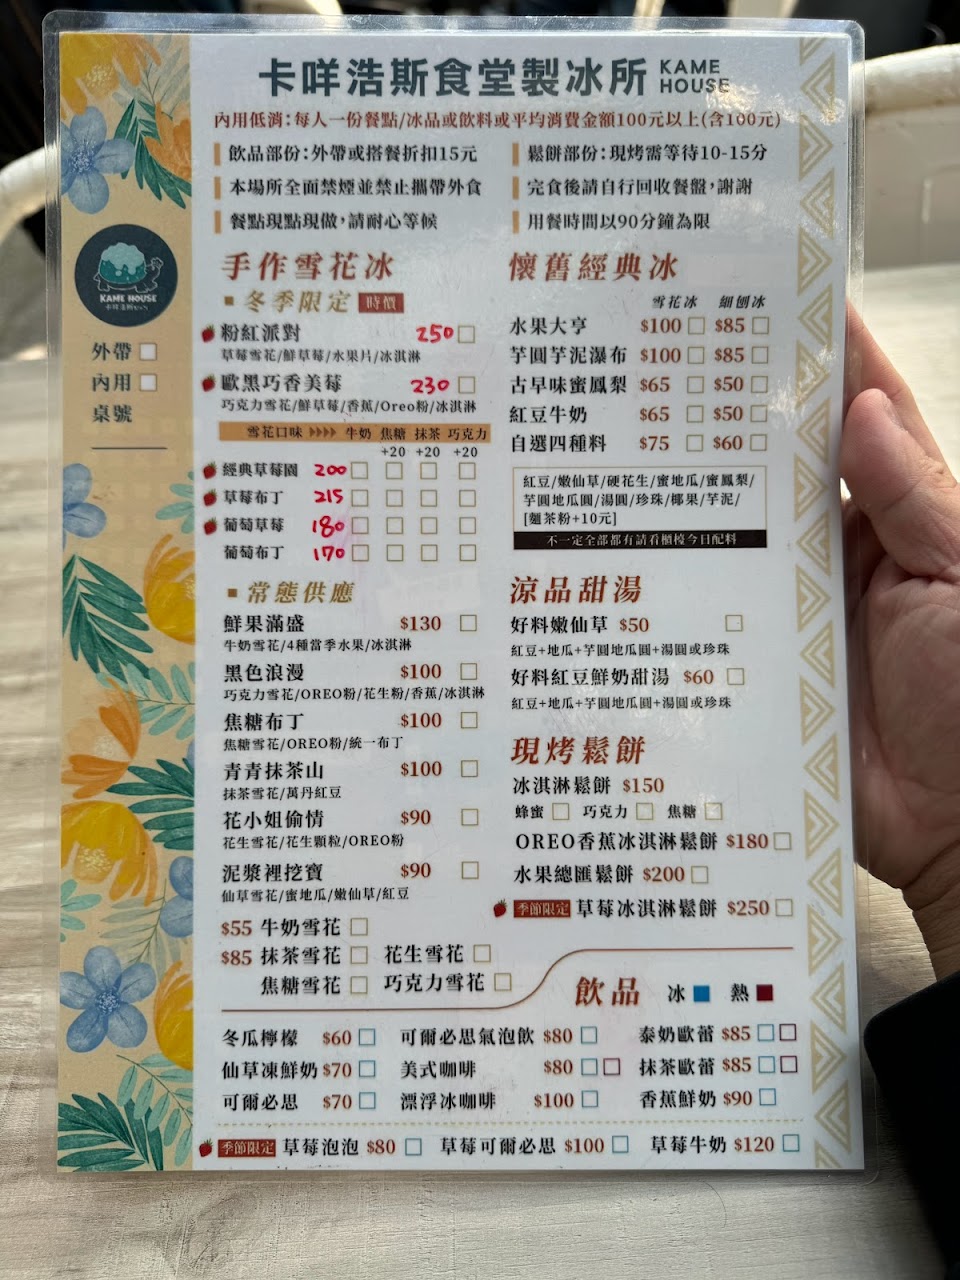 卡咩浩斯食堂製冰所 KAME HOUSE
內用低消:每人一份餐點/冰品或飲料或平均消費金額100元以上(含100元)
飲品部份:外帶或搭餐折扣15元
本場所全面禁煙並禁止攜帶外食
餐點現點現做,請耐心等候
鬆餅部份:現烤需等待10-15分
完食後請自行回收餐盤,謝謝
用餐時間以90分鐘為限
KAME HOUSE
外帶
內用
桌號
手作雪花冰
冬季限定 時價
粉紅派對 250
草莓雪花/鮮草莓/水果片/冰淇淋
歐黑巧香美莓 230
巧克力雪花/鮮草莓/香蕉/Oreo粉/冰淇淋
雪花口味 牛奶 焦糖 抹茶 巧克力
+20 +20 +20
經典草莓園 200
草莓布丁 215
葡萄草莓 180
葡萄布丁 170
常態供應
鮮果滿盛 $130
牛奶雪花/4種當季水果/冰淇淋
黑色浪漫 $100
巧克力雪花/OREO粉/花生粉/香蕉/冰淇淋
焦糖布丁 $100
焦糖雪花/OREO粉/統一布丁
青青抹茶山 $100
抹茶雪花/萬丹紅豆
花小姐偷情 $90
花生雪花/花生顆粒/OREO粉
泥漿裡挖寶 $90
仙草雪花/蜜地瓜/嫩仙草/紅豆
$55 牛奶雪花
$85 抹茶雪花 花生雪花
焦糖雪花 巧克力雪花
懷舊經典冰
雪花冰 細刨冰
水果大亨 $100 $85
芋圓芋泥瀑布 $100 $85
古早味蜜鳳梨 $65 $50
紅豆牛奶 $65 $50
自選四種料 $75 $60
紅豆/嫩仙草/硬花生/蜜地瓜/蜜鳳梨/
芋圓地瓜圓/湯圓/珍珠/椰果/芋泥/
[麵茶粉+10元]
不一定全部都有請看櫃檯今日配料
涼品甜湯
好料嫩仙草 $50
紅豆+地瓜+芋圓地瓜圓+湯圓或珍珠
好料紅豆鮮奶甜湯 $60
紅豆+地瓜+芋圓地瓜圓+湯圓或珍珠
現烤鬆餅
冰淇淋鬆餅 $150
蜂蜜 巧克力 焦糖
OREO香蕉冰淇淋鬆餅 $180
水果總匯鬆餅 $200
季節限定 草莓冰淇淋鬆餅 $250
飲品 冰 熱
冬瓜檸檬 $60 可爾必思氣泡飲 $80 泰奶歐蕾 $85
仙草凍鮮奶 $70 美式咖啡 $80 抹茶歐蕾 $85
可爾必思 $70 漂浮冰咖啡 $100 香蕉鮮奶 $90
季節限定 草莓泡泡 $80 草莓可爾必思 $100 草莓牛奶 $120